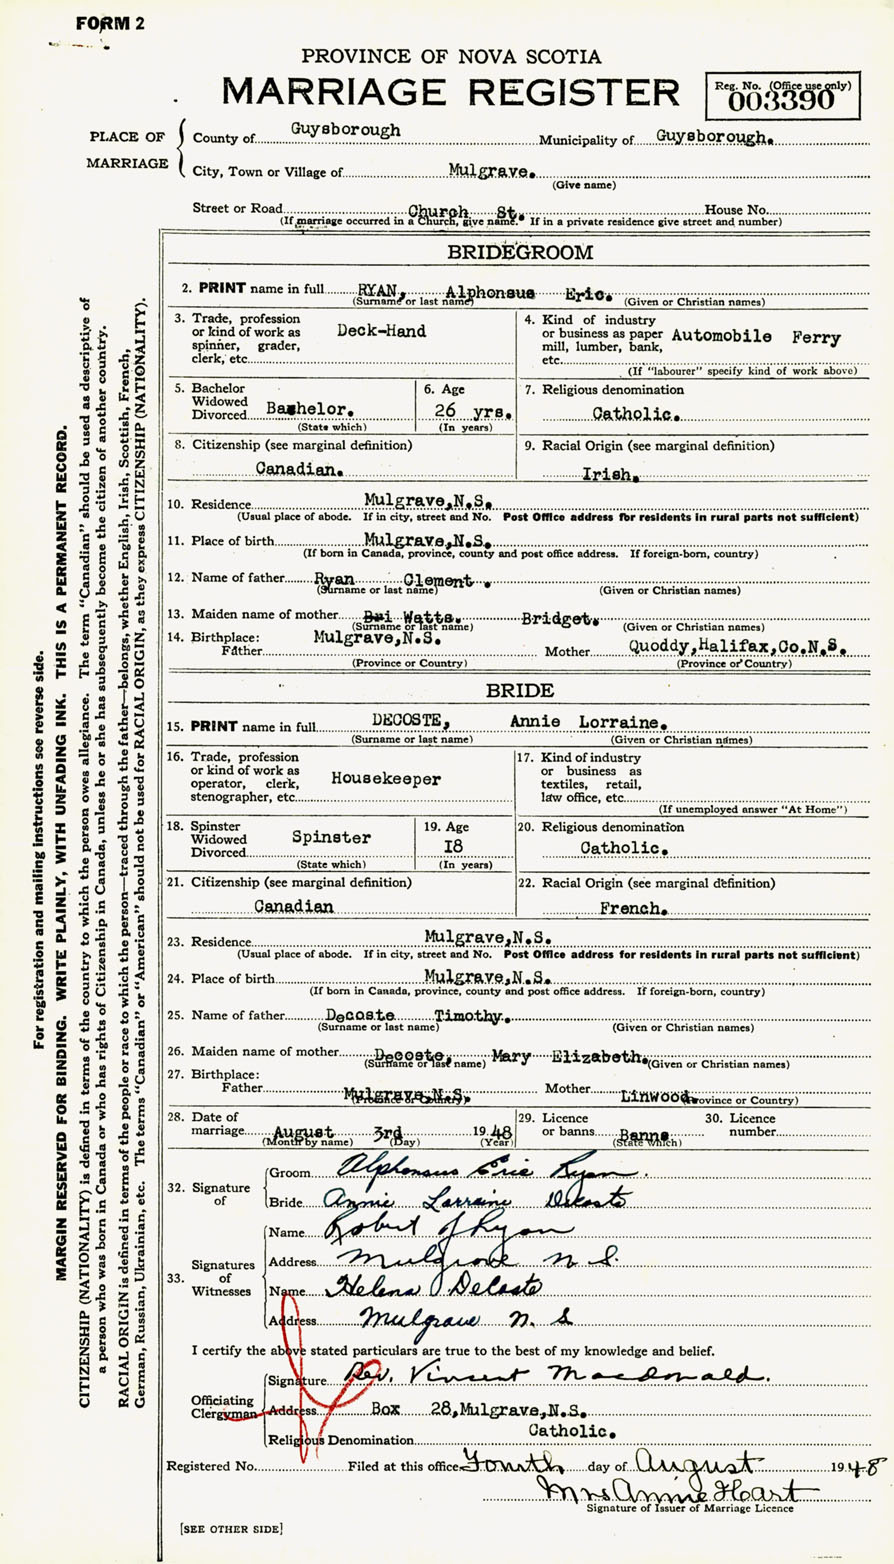 FORM 2
PROVINCE OF NOVA SCOTIA
MARRIAGE REGISTER
Reg. No. (Office use only)
003390
PLACE OF MARRIAGE
County of Guysborough Municipality of Guysborough.
City, Town or Village of Mulgrave.
(Give name)
Street or Road Church St. House No.
(If marriage occurred in a Church, give name. If in a private residence give street and number)
BRIDEGROOM
2. PRINT name in full RYAN, Alphonsus Eric.
(Surname or last name) (Given or Christian names)
3. Trade, profession or kind of work as spinner, grader, clerk, etc. Deck-Hand
4. Kind of industry or business as paper mill, lumber, bank, etc. Automobile Ferry
(If "labourer" specify kind of work above)
5. Bachelor Widowed Divorced Bachelor.
(State which)
6. Age 26 yrs.
(In years)
7. Religious denomination
Catholic.
8. Citizenship (see marginal definition)
Canadian.
9. Racial Origin (see marginal definition)
Irish.
10. Residence Mulgrave,N.S.
(Usual place of abode. If in city, street and No. Post Office address for residents in rural parts not sufficient)
11. Place of birth Mulgrave,N.S.
(If born in Canada, province, county and post office address. If foreign-born, country)
12. Name of father Ryan Clement .
(Surname or last name) (Given or Christian names)
13. Maiden name of mother Watts. Bridget.
(Surname or last name) (Given or Christian names)
14. Birthplace:
Father Mulgrave,N.S. Mother Quoddy,Halifax,Co.N.S.
(Province or Country) (Province or Country)
BRIDE
15. PRINT name in full DECOSTE, Annie Lorraine.
(Surname or last name) (Given or Christian names)
16. Trade, profession or kind of work as operator, clerk, stenographer, etc. Housekeeper
17. Kind of industry or business as textiles, retail, law office, etc.
(If unemployed answer "At Home")
18. Spinster Widowed Divorced Spinster
(State which)
19. Age I8
(In years)
20. Religious denomination
Catholic.
21. Citizenship (see marginal definition)
Canadian
22. Racial Origin (see marginal definition)
French.
23. Residence Mulgrave,N.S.
(Usual place of abode. If in city, street and No. Post Office address for residents in rural parts not sufficient)
24. Place of birth Mulgrave,N.S.
(If born in Canada, province, county and post office address. If foreign-born, country)
25. Name of father Decoste Timothy.
(Surname or last name) (Given or Christian names)
26. Maiden name of mother Decoste, Mary Elizabeth.
(Surname or last name) (Given or Christian names)
27. Birthplace:
Father Mulgrave,N.S. Mother Linwood.
(Province or Country) (Province or Country)
28. Date of marriage August 3rd 1948
(Month by name) (Day) (Year)
29. Licence or banns Banns
(State which)
30. Licence number
32. Signature of
Groom Alphonsus Eric Ryan.
Bride Annie Lorraine Decoste
33. Signatures of Witnesses
Name Robert J Ryan
Address Mulgrave N S.
Name Helena DeCoste
Address Mulgrave N. S
I certify the above stated particulars are true to the best of my knowledge and belief.
Officiating Clergyman
Signature Rev. Vincent Macdonald.
Address Box 28,Mulgrave,N.S.
Religious Denomination Catholic.
Registered No. Filed at this office Fourth day of August 1948
Mrs Annie Hart
Signature of Issuer of Marriage Licence
[SEE OTHER SIDE]
For registration and mailing instructions see reverse side.
MARGIN RESERVED FOR BINDING. WRITE PLAINLY, WITH UNFADING INK. THIS IS A PERMANENT RECORD.
CITIZENSHIP (NATIONALITY) is defined in terms of the country to which the person owes allegiance. The term "Canadian" should be used as descriptive of
a person who was born in Canada or who has rights of Citizenship in Canada, unless he or she has subsequently become the citizen of another country.
RACIAL ORIGIN is defined in terms of the people or race to which the person—traced through the father—belongs, whether English, Irish, Scottish, French,
German, Russian, Ukrainian, etc. The terms "Canadian" or "American" should not be used for RACIAL ORIGIN, as they express CITIZENSHIP (NATIONALITY).